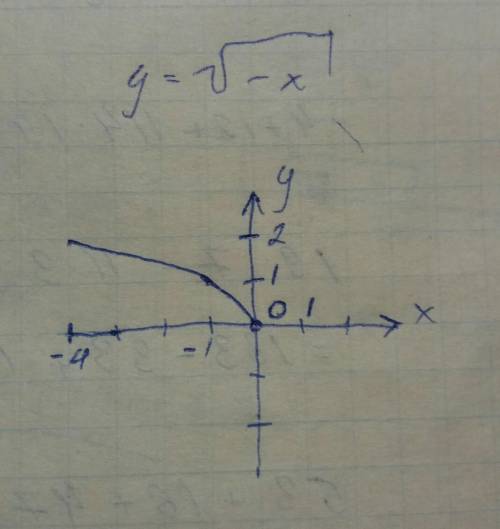 y = √-x
y
2
1
0 1 x
-4 -1